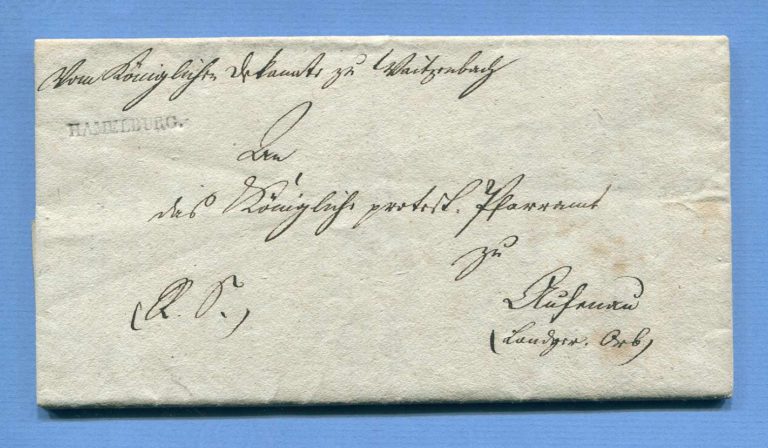 Vom Königlichen Dekanate zu Waitzenbach
HAMELBURG.
An
das Königliche protest. Pfarramt
zu
(R. S.)
Aufenau
(Landger. Orb)